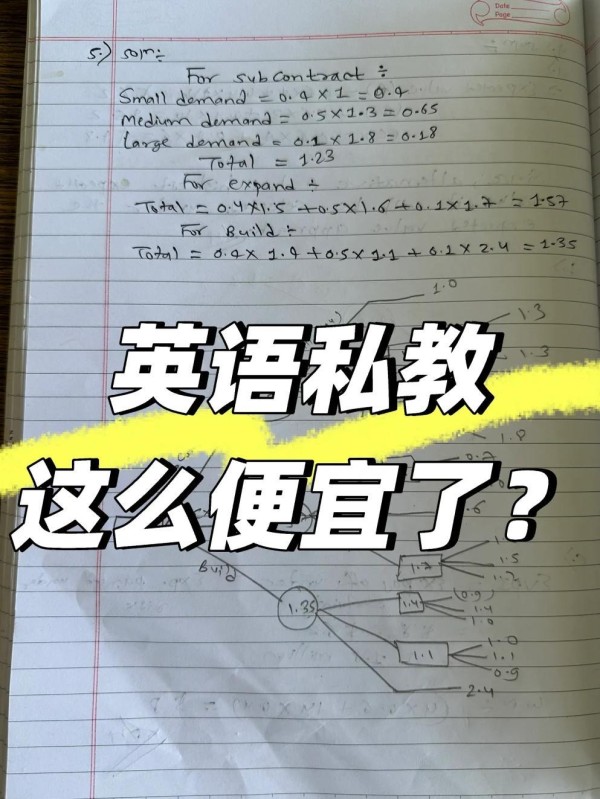 Date
Page
5.) soln÷
For subcontract ÷
Small demand = 0.4 × 1 = 0.4
Medium demand = 0.5 × 1.3 = 0.65
Large demand = 0.1 × 1.8 = 0.18
Total = 1.23
For expand ÷
Total = 0.4×1.5 + 0.5×1.6 + 0.1×1.7 = 1.57
For Build ÷
Total = 0.4 × 1.4 + 0.5 × 1.1 + 0.1 × 2.4 = 1.35
1.0
1.3
1.3
英语私教
1.8
0.7
这么便宜了?
1.7
1.5
Build
1.35
1.4
(0.9)
1.4
1.0
1.1
1.0
1.1
0.9
2.4